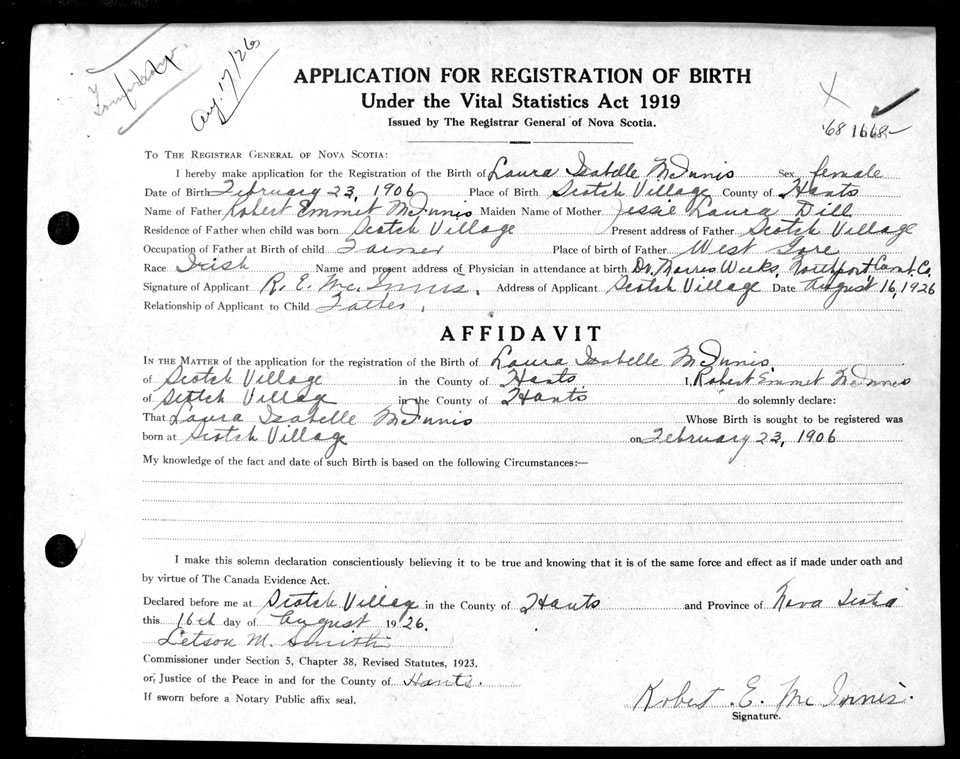 Aug. 17/26
APPLICATION FOR REGISTRATION OF BIRTH
Under the Vital Statistics Act 1919
Issued by The Registrar General of Nova Scotia.
X
'68 1668
TO THE REGISTRAR GENERAL OF NOVA SCOTIA:
I hereby make application for the Registration of the Birth of Laura Isabelle McInnis Sex female
Date of Birth February 23, 1906 Place of Birth Scotch Village County of Hants
Name of Father Robert Emmet McInnis Maiden Name of Mother Jessie Laura Dill
Residence of Father when child was born Scotch Village Present address of Father Scotch Village
Occupation of Father at Birth of child Farmer Place of birth of Father West Gore
Race Irish Name and present address of Physician in attendance at birth Dr. Morris Weeks, Northport, Co.
Signature of Applicant R. E. McInnis. Address of Applicant Scotch Village Date August 16, 1926
Relationship of Applicant to Child Father.
AFFIDAVIT
IN THE MATTER of the application for the registration of the Birth of Laura Isabelle McInnis.
of Scotch Village in the County of Hants I, Robert Emmet McInnis
of Scotch Village in the County of Hants do solemnly declare:
That Laura Isabelle McInnis Whose Birth is sought to be registered was
born at Scotch Village on February 23, 1906
My knowledge of the fact and date of such Birth is based on the following Circumstances:—
I make this solemn declaration conscientiously believing it to be true and knowing that it is of the same force and effect as if made under oath and
by virtue of The Canada Evidence Act.
Declared before me at Scotch Village in the County of Hants and Province of Nova Scotia
this 16th day of August 1926.
Letson M. Smith
Commissioner under Section 5, Chapter 38, Revised Statutes, 1923.
or, Justice of the Peace in and for the County of Hants.
If sworn before a Notary Public affix seal.
Robert. E. McInnis.
Signature.